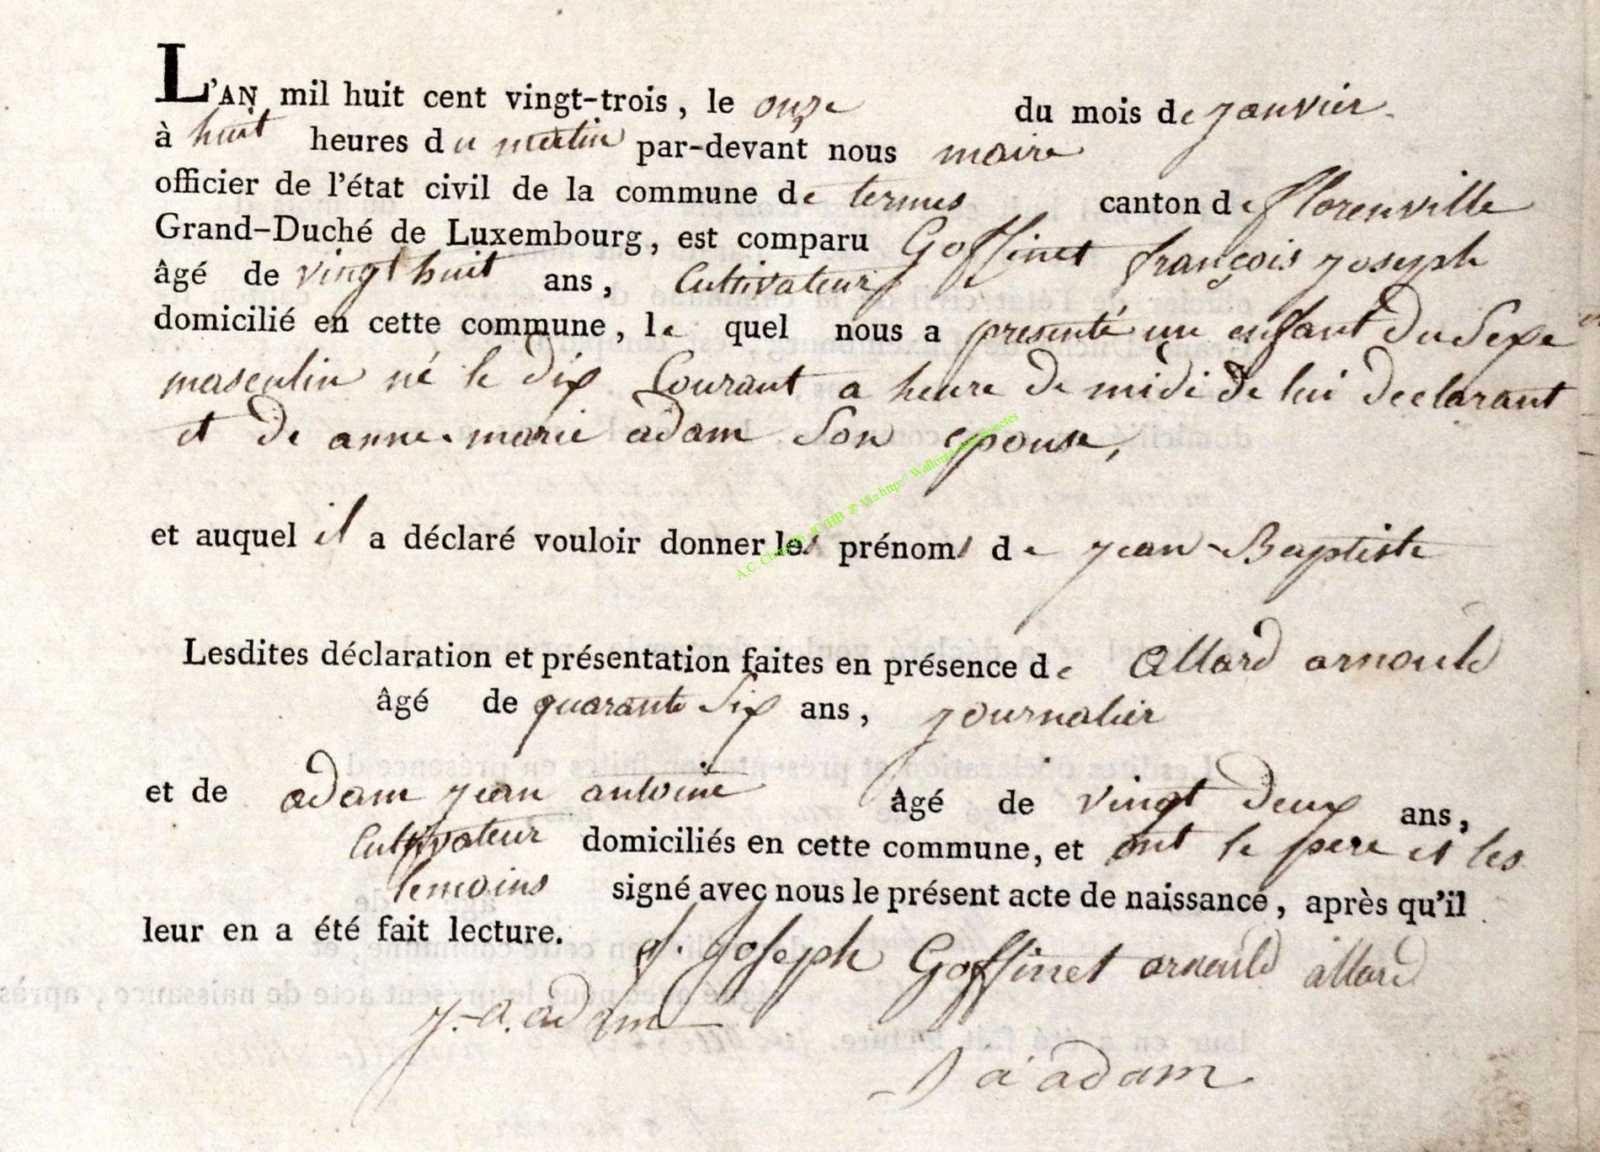 L'AN mil huit cent vingt-trois, le onze du mois de janvier
à huit heures du matin par-devant nous maire
officier de l'état civil de la commune de termes canton de florenville
Grand-Duché de Luxembourg, est comparu Goffinet françois joseph
âgé de vingt huit ans, Cultivateur
domicilié en cette commune, le quel nous a presenté un enfant du Sexe
masculin né le dix Courant a heure de midi de lui declarant
et de anne-marie adam Son epouse,
et auquel il a déclaré vouloir donner les prénoms de jean-Baptiste
Lesdites déclaration et présentation faites en présence de allard arnould
âgé de quarante Six ans, journalier
et de adam jean antoine âgé de vingt deux ans,
Cultivateur domiciliés en cette commune, et ont le pere et les
temoins signé avec nous le présent acte de naissance, après qu'il
leur en a été fait lecture.
f. Joseph Goffinet arnould allard
j. a. adam
a adam